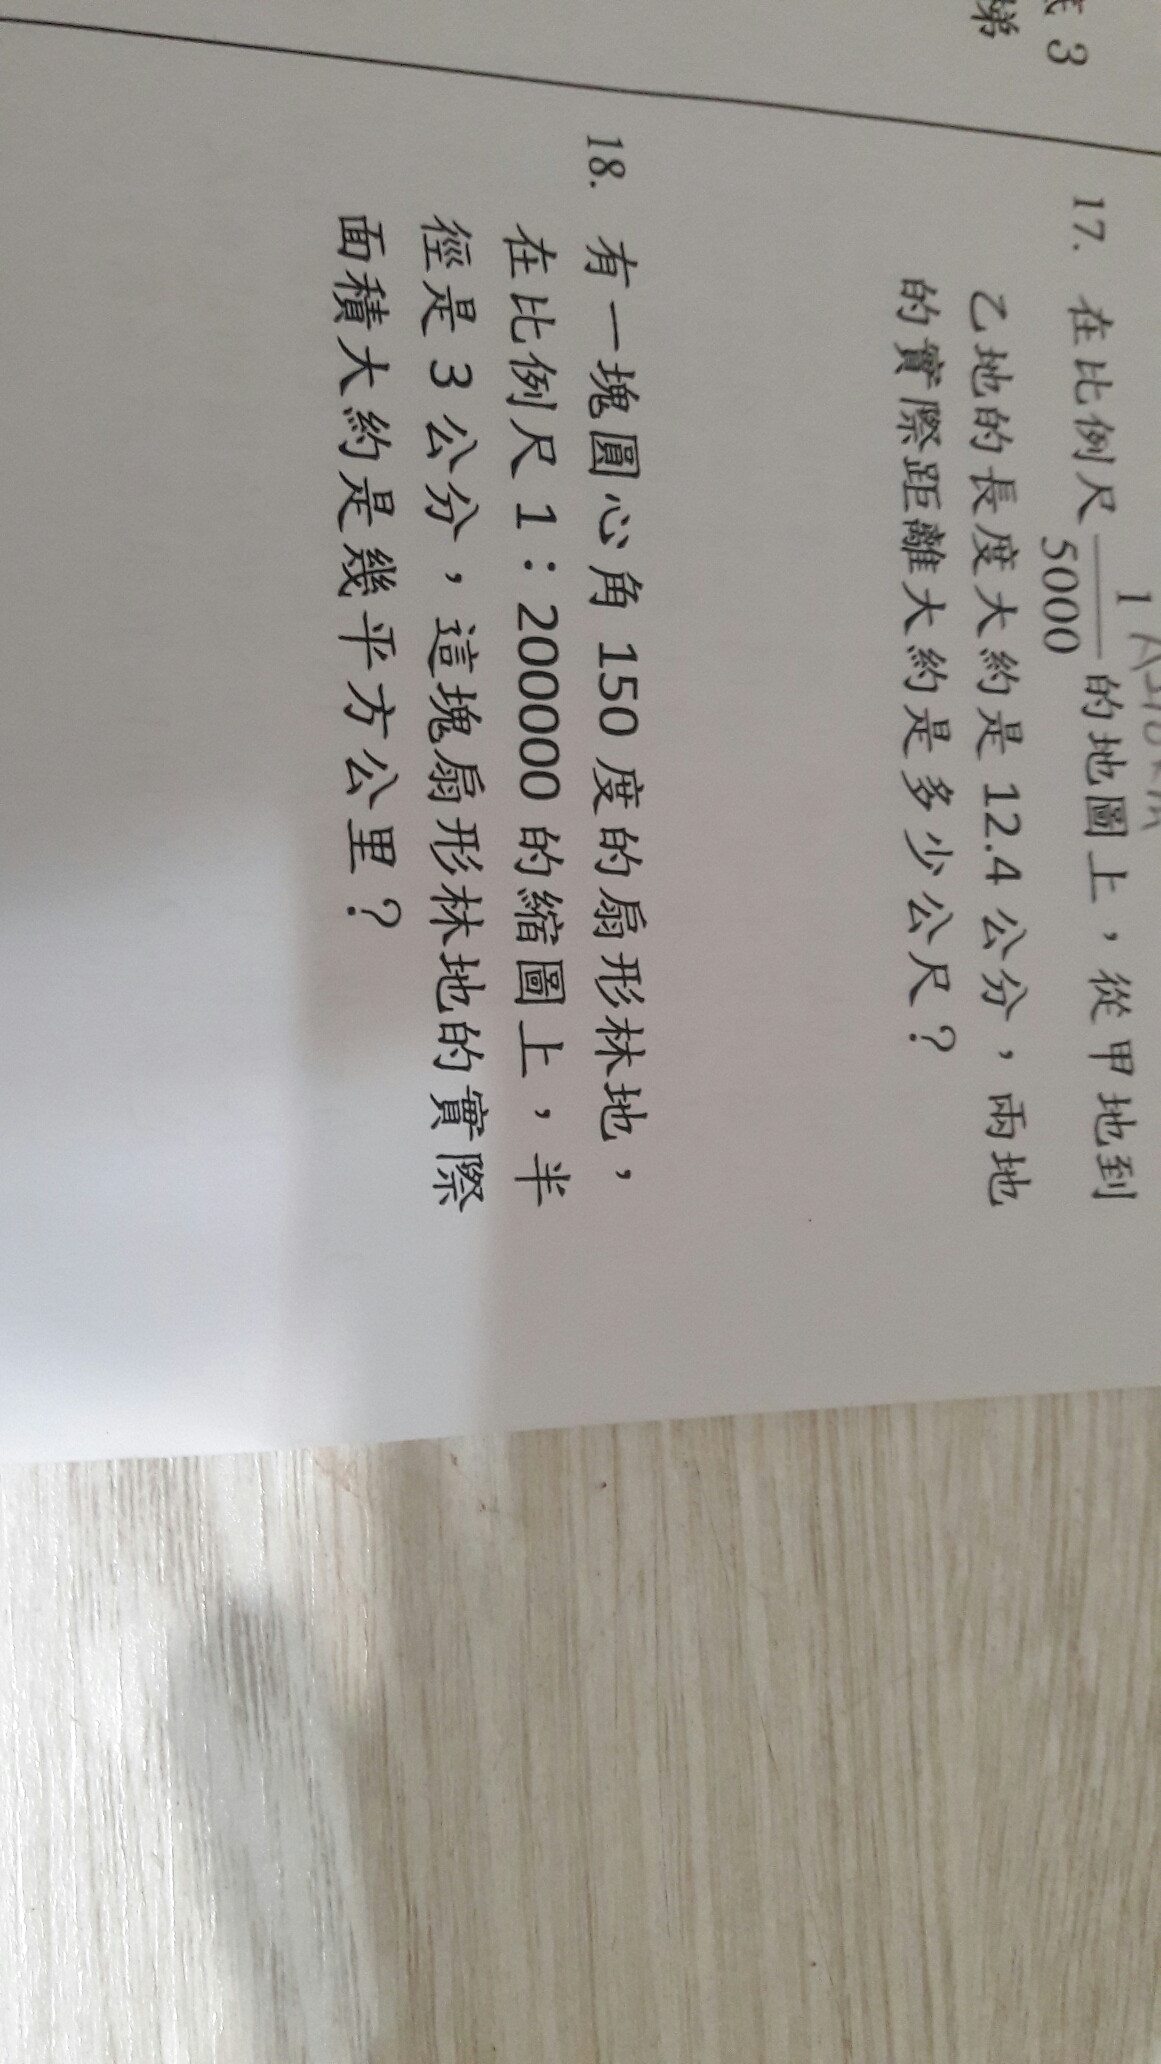 3
17. 在比例尺 1/5000 的地圖上，從甲地到
乙地的長度大約是 12.4 公分，兩地
的實際距離大約是多少公尺？
18. 有一塊圓心角 150 度的扇形林地，
在比例尺 1：200000 的縮圖上，半
徑是 3 公分，這塊扇形林地的實際
面積大約是幾平方公里？